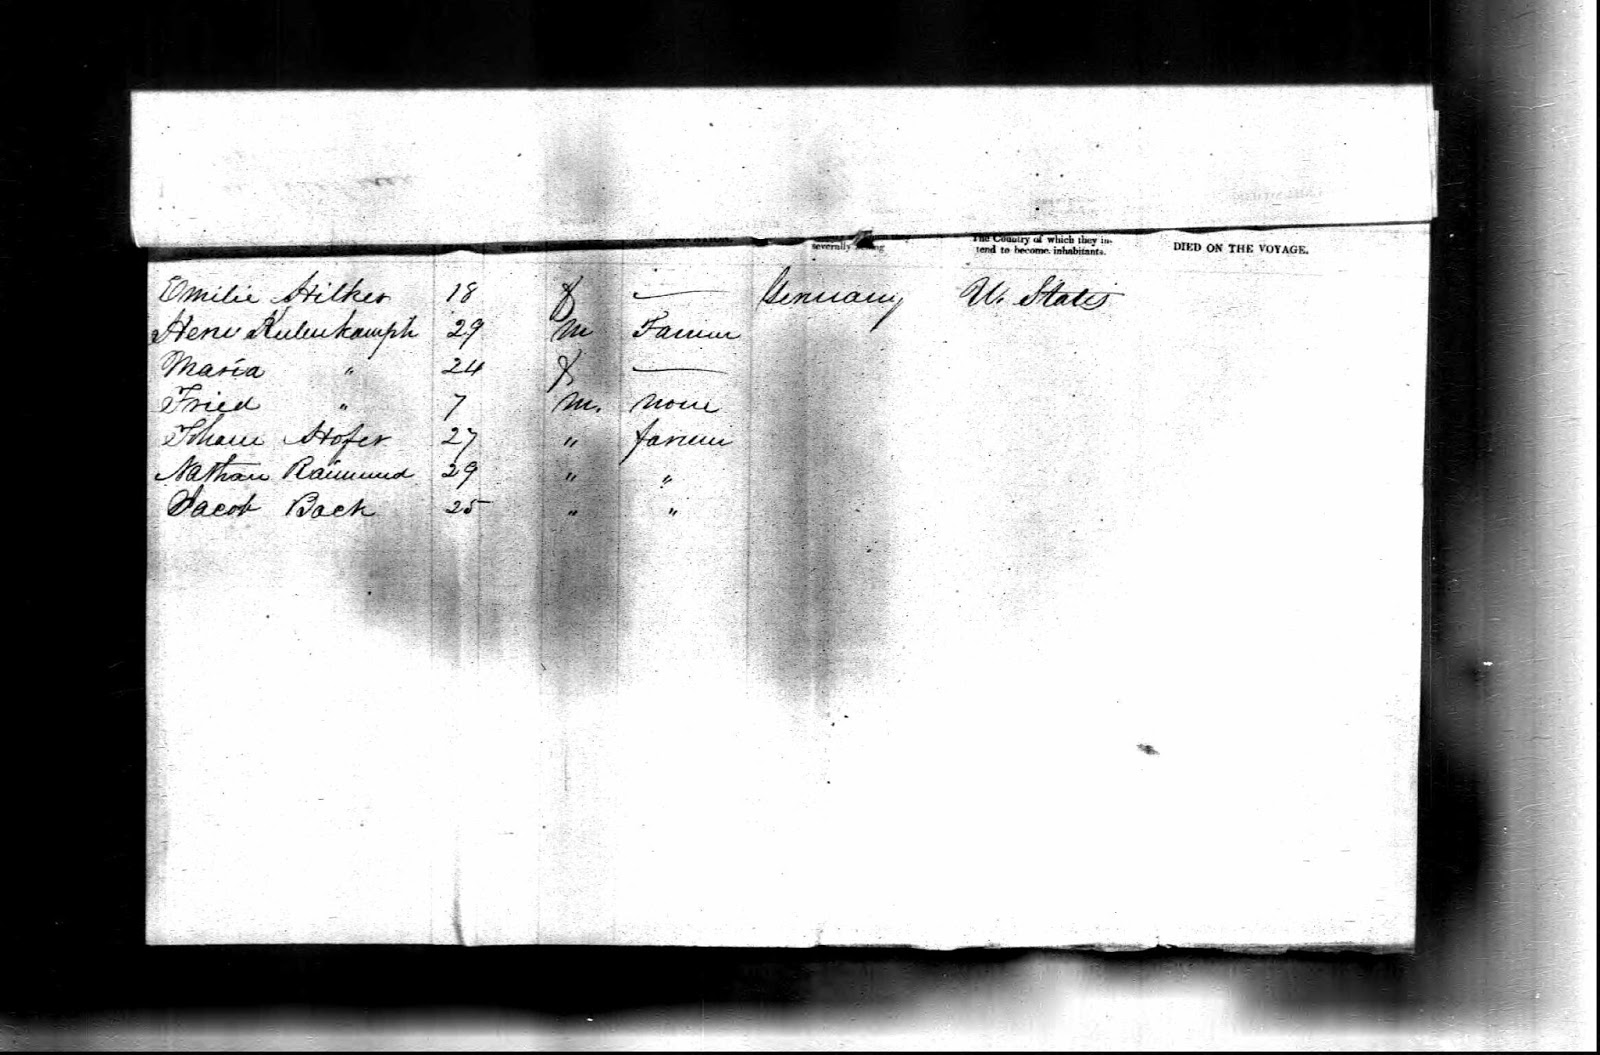 severally
The Country of which they in-
tend to become inhabitants.
DIED ON THE VOYAGE.
Emilie Hilker 18 f — Germany U. States
Henr Kulenkamph 29 m Farmer
Maria " 24 f. —
Fried " 7 m. none
Johann Hofer 27 " farmer
Nathan Raimund 29 " "
Jacob Back 25 " "